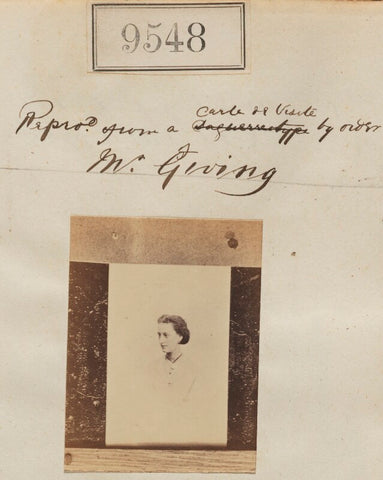 9548
Repro.d from a carte de Visite daguerreotype by order
Mr. Geving